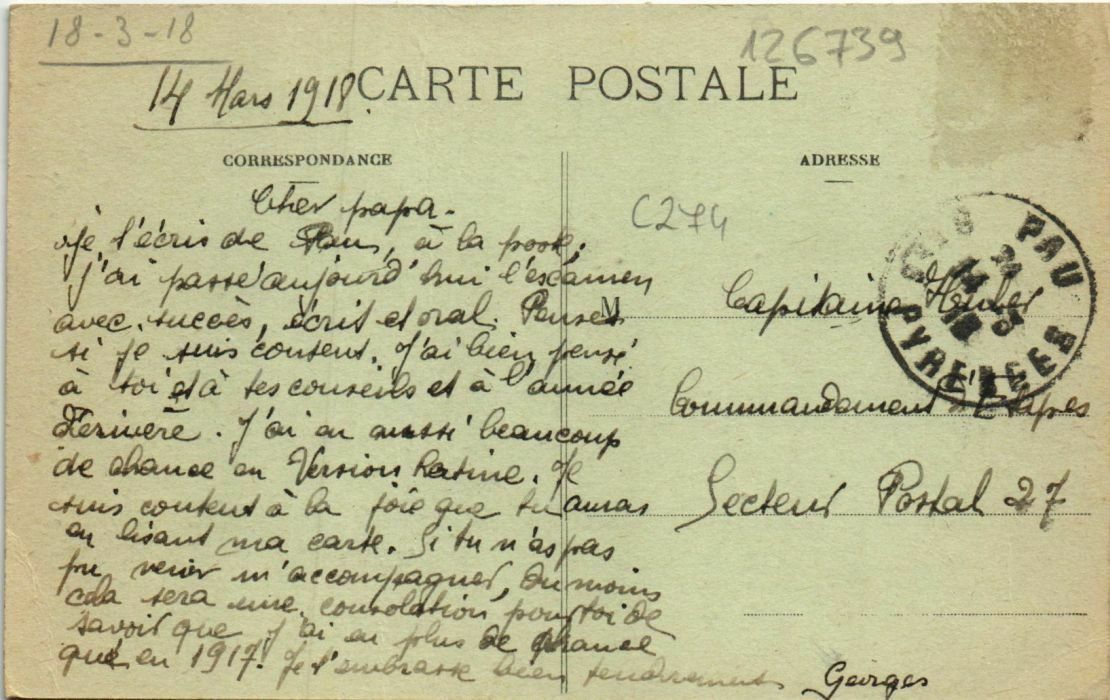 18-3-18
126739
14 Mars 1918.
CARTE POSTALE
CORRESPONDANCE
ADRESSE
Cher papa.
Je t'écris de Pau, à la poste,
j'ai passé aujourd'hui l'examen
avec succès, écrit et oral. Penses
si je suis content. J'ai bien pensé
à toi et à tes conseils et à l'année
dernière. J'ai eu aussi beaucoup
de chance en Version Latine. Je
suis content à la joie que tu auras
en lisant ma carte. Si tu n'as pas
pu venir m'accompagner, du moins
cela sera une consolation pour toi de
savoir que j'ai eu plus de chance
qu'en 1917. Je t'embrasse bien tendrement.
Georges
C274
M
Capitaine
Commandement d'Etapes
Secteur Postal 27
PAU
14 3
18
PYRENEES